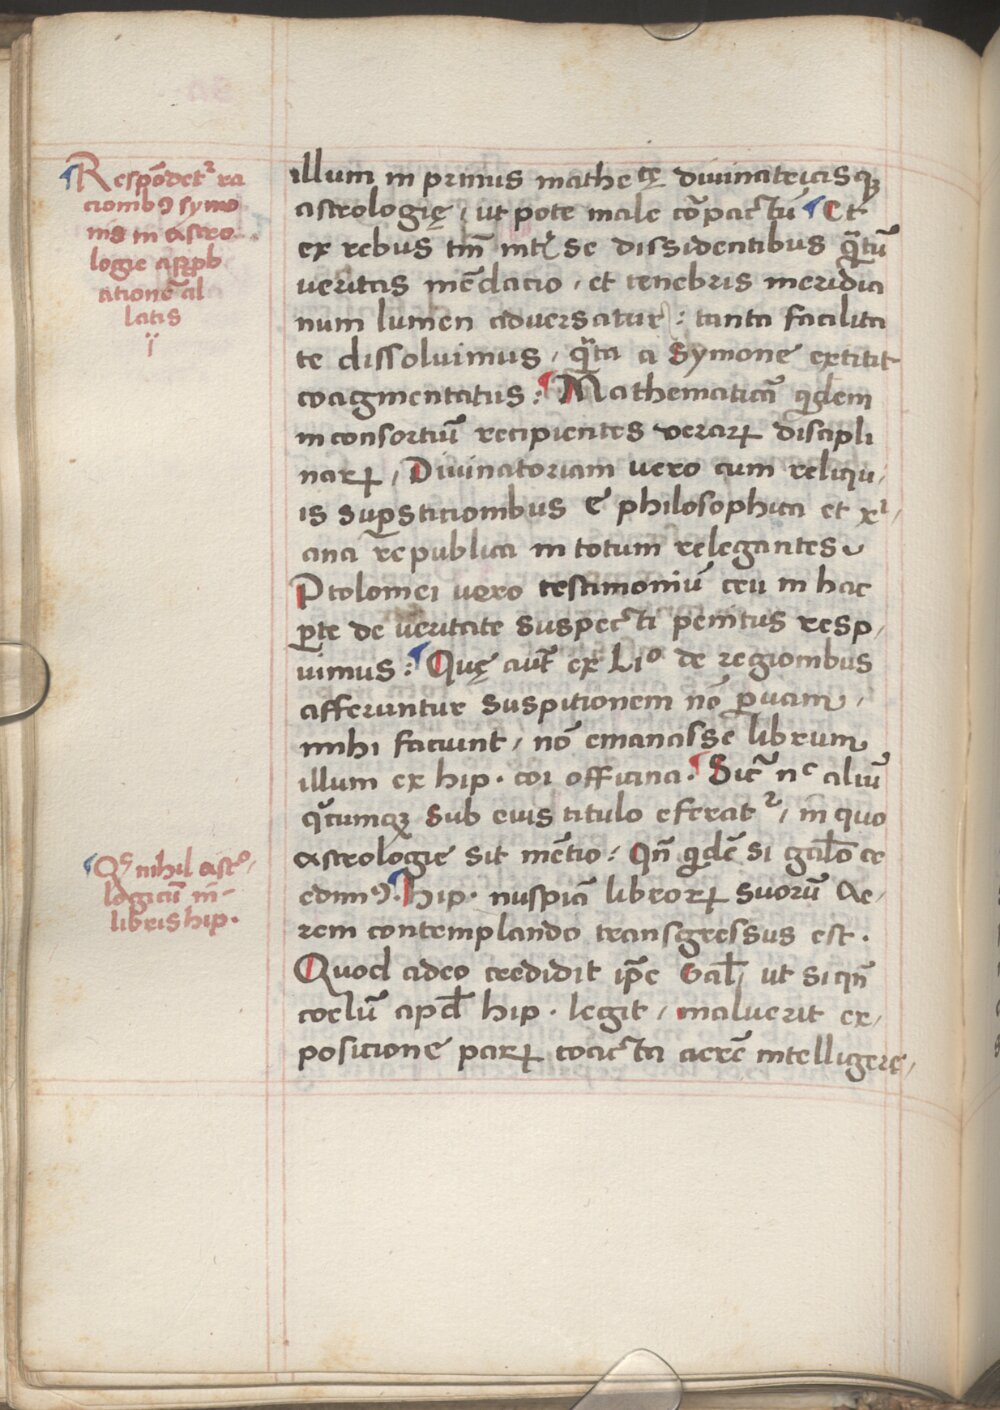 Respōdetᷣ ra
cionibꝰ symo
nis in astro
logie apꝓb
ationē al
latis
illum in primis mathetę divinatricisqꝫ
astrologię, ut pote male cōpactū Et
ex rebus tm̄ int̄ se dissidentibus qᷓtū
veritas mēdacio, et tenebris meridia
num lumen adversatur: tanta facilita
te dissolvimus, qᷓta a Symone extitit
coagmentatus: Mathematicā qidem
in consortiū recipientes verarꝝ discipli
narꝝ, Divinatoriam vero cum reliqu,
is suꝑsticionibus e philosophica et xⁱ,
ana republica in totum relegantes
Ptolomei vero testimoniū ceu in hac
ꝑte de veritate suspecti penitus resp,
uimus: Quę aut̄ ex Liº de regionibus
afferuntur suspitionem nō ꝑvam,
mihi faciunt, nō emanasse librum
illum ex hip. coi officina. Sicᷓ nᶜ aliū
qͥcumqꝫ sub eius titulo eferatᷣ, in quo
astrologie sit mētio: Qn̄ qidē si galō cr
edimꝰ. Hip. nuspiā librorꝝ suorū Ae,
rem contemplando transgressus est.
Quod adeo credidit ip̄e Gal̄, ut si qn̄
coelū apd̄ hip. legit, maluerit ex,
positione parꝝ coacta aerē intelligere,
Qͩ nihil astº,
logicū in
libris hip.